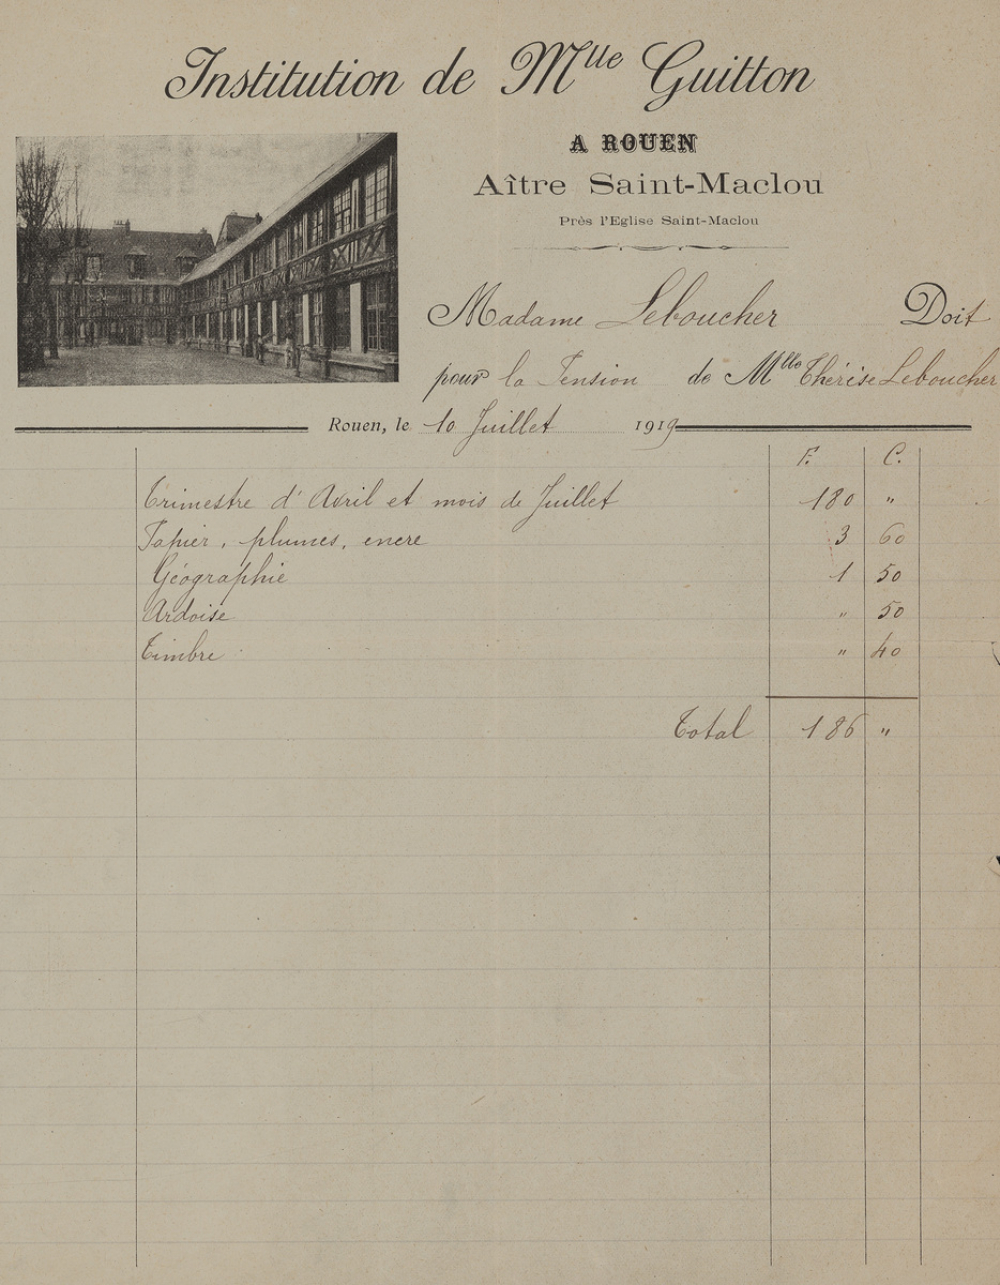 Institution de Mlle Guitton
A ROUEN
Aître Saint-Maclou
Près l'Eglise Saint-Maclou
Madame Leboucher Doit
pour la Pension de Mlle Thérèse Leboucher
Rouen, le 10 Juillet 1919
F. C.
Trimestre d'Avril et mois de Juillet 180 "
Papier, plumes, encre 3 60
Géographie 1 50
Ardoise " 50
Timbre " 40
Total 186 "